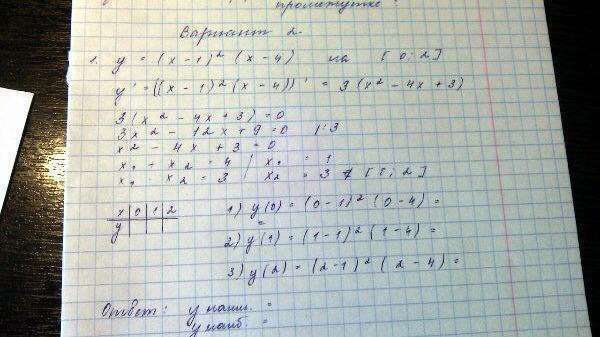 промежутке.
Вариант 2.
1. y = (x-1)² (x-4) на [0; 2]
y' = ((x-1)² (x-4))' = 3(x² - 4x + 3)
3(x² - 4x + 3) = 0
3x² - 12x + 9 = 0 |:3
x² - 4x + 3 = 0
x₁ - x₂ = 4 | x₁ = 1
x₁ - x₂ = 3 | x₂ = 3 ∉ [0; 2]
x 0 1 2
y
1) y(0) = (0-1)² (0-4) =
=
2) y(1) = (1-1)² (1-4) =
3) y(2) = (2-1)² (2-4) =
Ответ: y наим. =
y наиб. =